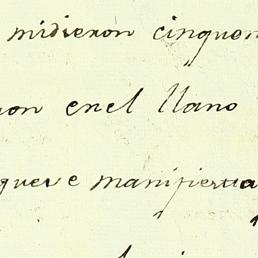 midieron cinquen
ron enel llano
que se manifiesta